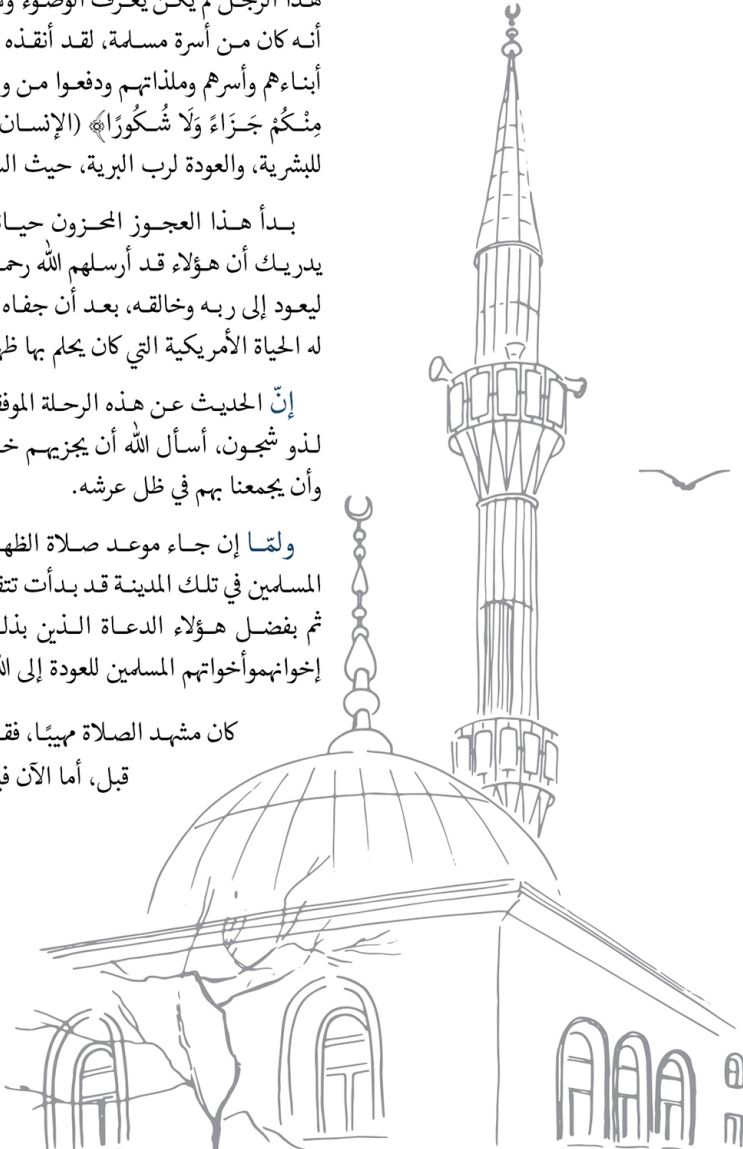 هذا الرجل لم يكن يعرف الوضوء
أنه كان من أسرة مسلمة، لقد أنقذه
أبناءهم وأسرهم وملذاتهم ودفعوا من
مِنْكُمْ جَزَاءً وَلَا شُكُورًا﴾ (الإنسان
للبشرية، والعودة لرب البرية، حيث
بدأ هذا العجوز المحزون
يدريك أن هؤلاء قد أرسلهم الله
ليعود إلى ربه وخالقه، بعد أن جفاه
له الحياة الأمريكية التي كان يحلم بها
إنّ الحديث عن هذه الرحلة
لذو شجون، أسأل الله أن يجزيهم
وأن يجمعنا بهم في ظل عرشه.
ولمّا إن جاء موعد صلاة
المسلمين في تلك المدينة قد بدأت
ثم بفضل هؤلاء الدعاة الذين
إخوانهموأخواتهم المسلمين للعودة إلى
كان مشهد الصلاة مهيبًا،
قبل، أما الآن